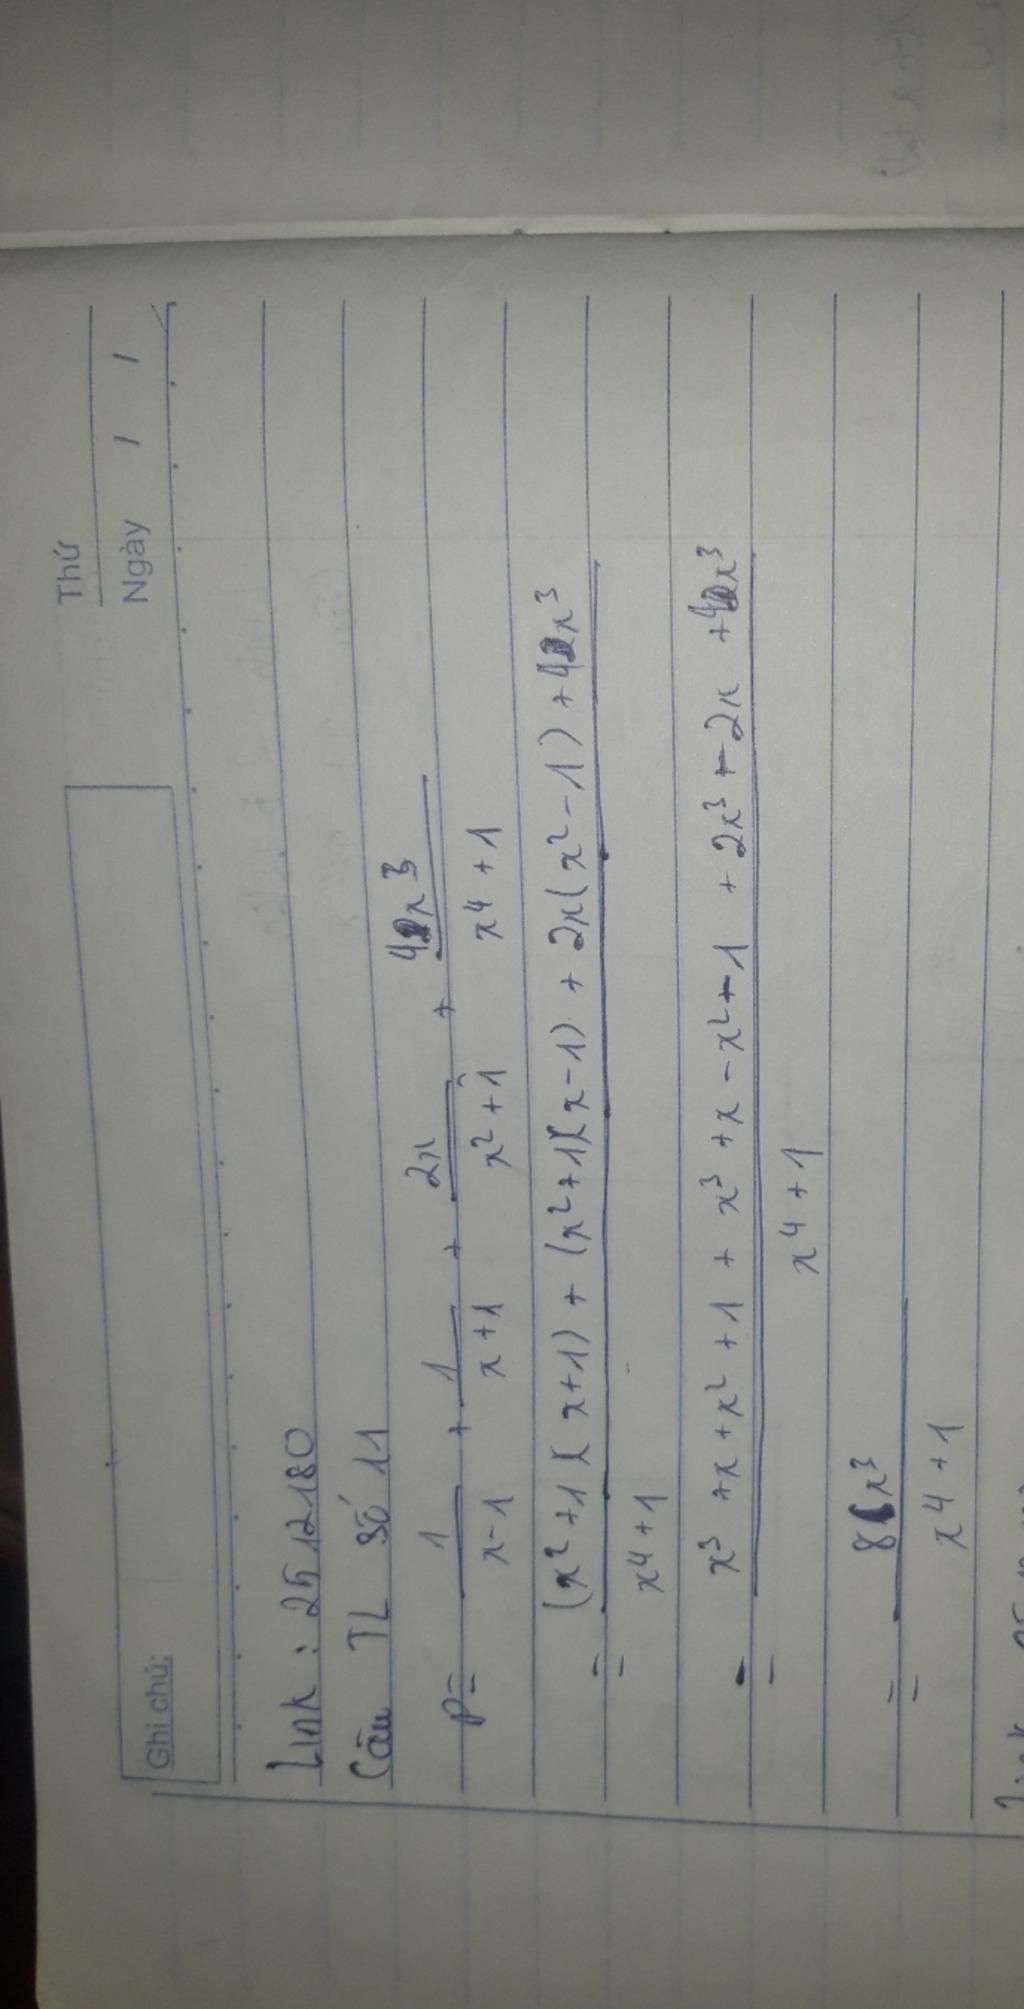 Thứ
Ngày / /
Ghi chú:
Link : 2512180
Câu TL số 11
P = 1/(x-1) + 1/(x+1) + 2x/(x²+1) + 4x³/(x⁴+1)
= ((x²+1)(x+1) + (x²+1)(x-1) + 2x(x²-1) + 4x³)/(x⁴+1)
= (x³+x+x²+1 + x³+x-x²-1 + 2x³-2x +4x³)/(x⁴+1)
= 8x³/(x⁴+1)